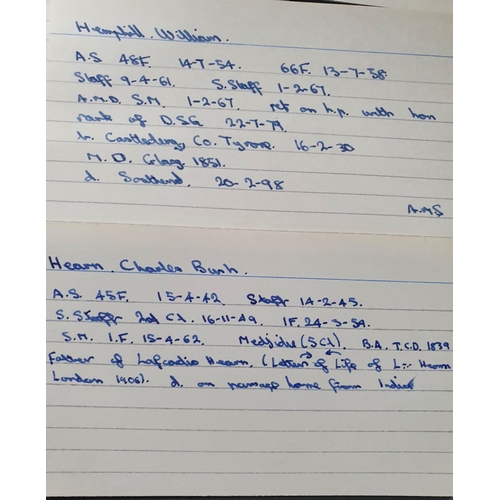 Hemphill. William.
A.S 48F. 14-7-54. 66F. 13-7-58
Staff 9-4-61. S. Staff 1-2-67.
A.M.D. S.M. 1-2-67. ret on h.p. with hon
rank of D.S.G. 22-7-79.
b. Castlederg, Co. Tyrone. 16-2-30
M.D. Glasg. 1851.
d. Southend. 20-2-98
A.M.S
Hearn. Charles Bush.
A.S. 45F. 15-4-42. Staff 14-2-45.
S. Staff 2nd Cl. 16-11-49. 1F. 24-3-54.
S.M. 1.F. 15-4-62. Medjidie (5Cl). B.A. T.C.D. 1839
Father of Lafcadio Hearn. (Letters of Life of L.. Hearn
London 1906). d. on passage home from India